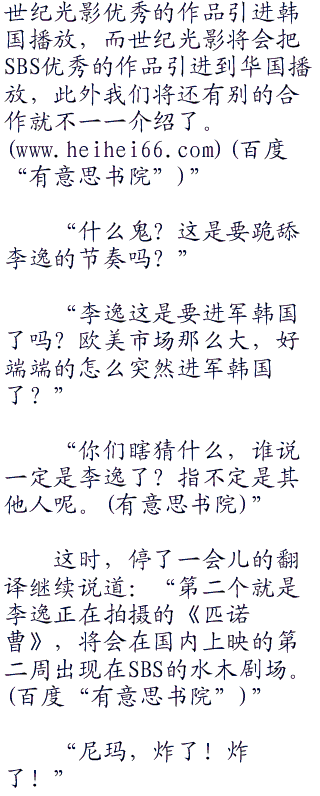 世纪光影优秀的作品引进韩
国播放，而世纪光影将会把
SBS优秀的作品引进到华国播
放，此外我们将还有别的合
作就不一一介绍了。
(www.heihei66.com)(百度
“有意思书院”)”
“什么鬼？这是要跪舔
李逸的节奏吗？”
“李逸这是要进军韩国
了吗？欧美市场那么大，好
端端的怎么突然进军韩国
了？”
“你们瞎猜什么，谁说
一定是李逸了？指不定是其
他人呢。(有意思书院)”
这时，停了一会儿的翻
译继续说道：“第二个就是
李逸正在拍摄的《匹诺
曹》，将会在国内上映的第
二周出现在SBS的水木剧场。
(百度“有意思书院”)”
“尼玛，炸了！炸
了！”